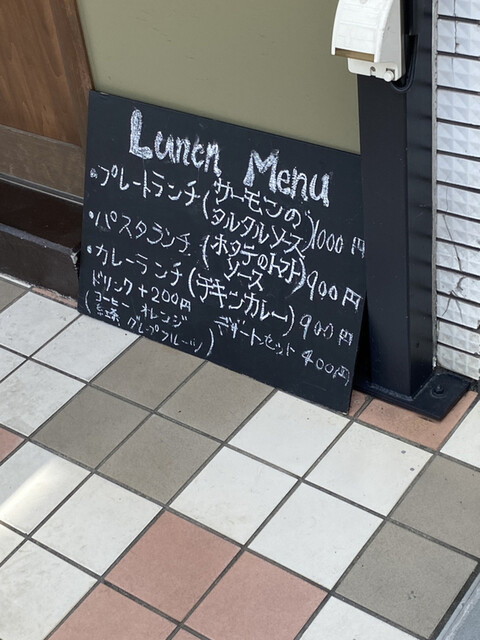 Lunch Menu
・プレートランチ(サーモンの
タルタルソース)1000円
・パスタランチ(ホタテのトマト
ソース)900円
・カレーランチ(チキンカレー)900円
ドリンク+200円
(コーヒー オレンジ デザートセット400円
紅茶 グレープフルーツ)